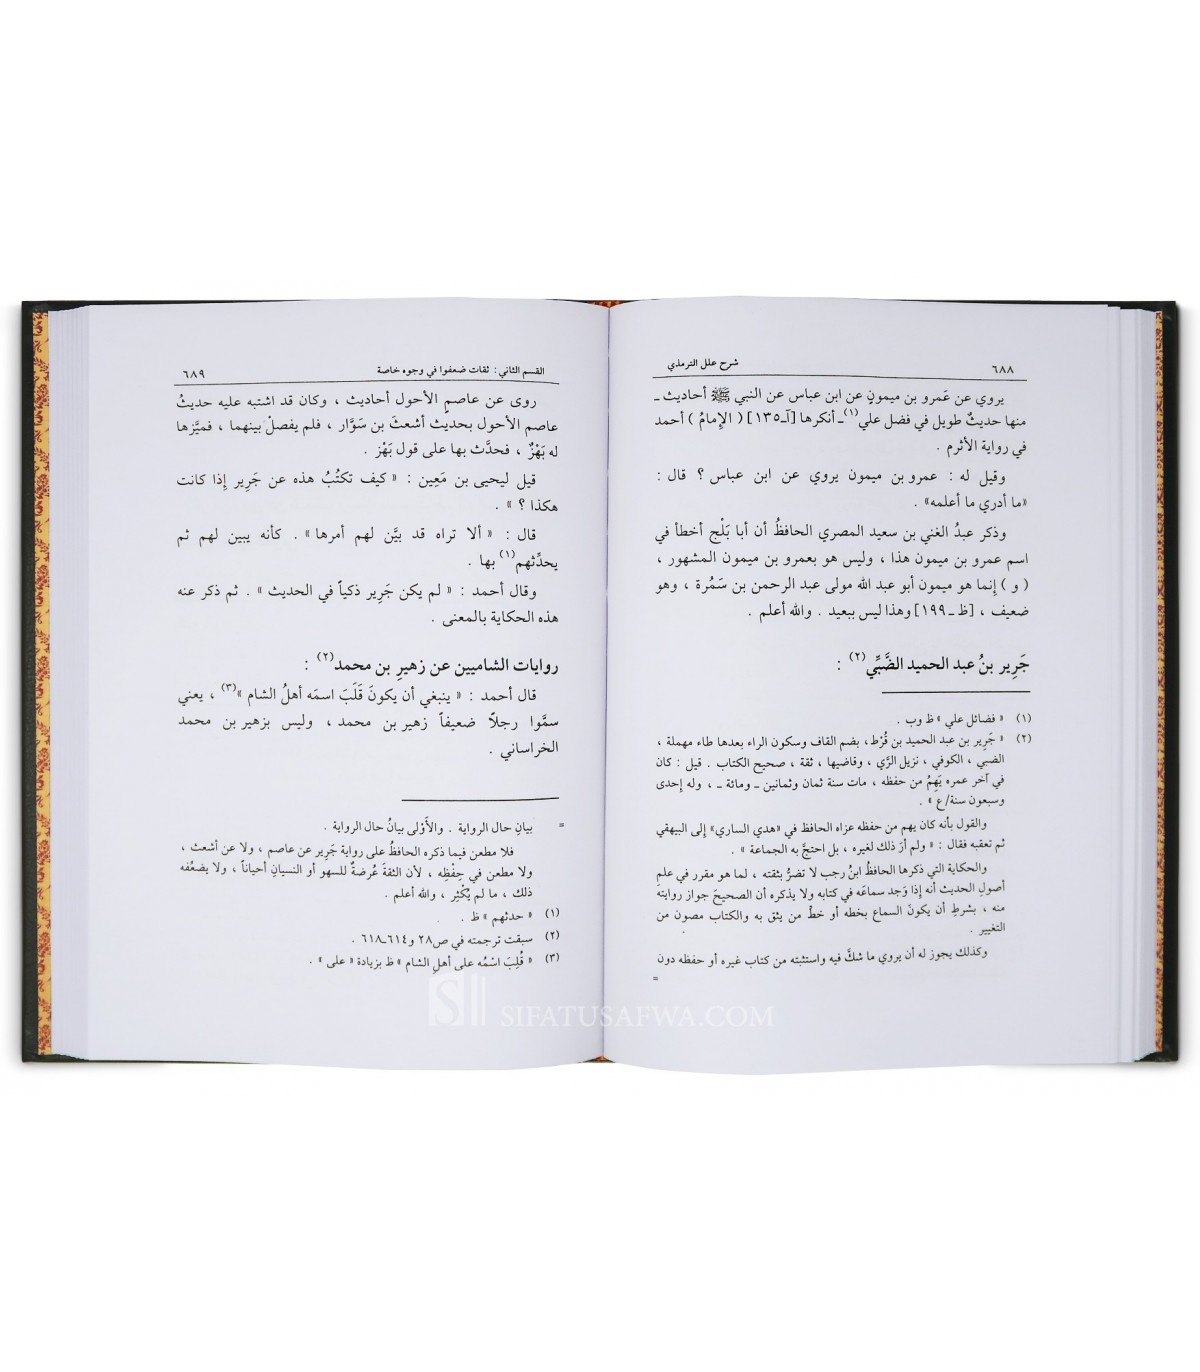 ٦٨٨
شرح علل الترمذي
يروي عن عَمرو بن ميمونٍ عن ابن عباس عن النبي ﷺ أحاديث ـ
منها حديثٌ طويل في فضل علي(١)ـ أنكرها [آ-١٣٥] ( الإمامُ ) أحمد
في رواية الأثرم .
وقيل له : عمرو بن ميمون يروي عن ابن عباس ؟ قال :
«ما أدري ما أعلمه» .
وذكر عبدُ الغني بن سعيد المصري الحافظُ أن أبا بَلْج أخطأ في
اسم عمرو بن ميمون هذا ، وليس هو بعمرو بن ميمون المشهور ،
( و ) إنما هو ميمون أبو عبد الله مولى عبد الرحمن بن سَمُرة ، وهو
ضعيف ، [ظ ـ ١٩٩] وهذا ليس ببعيد . والله أعلم .
جَرِير بنُ عبد الحميد الضَّبِّي(٢) :
(١) « فضائل علي » ظ وب .
(٢) « جَرِير بن عبد الحميد بن قُرْط، بضم القاف وسكون الراء بعدها طاء مهملة ،
الضبي ، الكوفي ، نزيل الرَّي ، وقاضيها ، ثقة ، صحيح الكتاب . قيل : كان
في آخر عمره يَهِمُ من حفظه ، مات سنة ثمان وثمانين ـ ومائة ـ ، وله إحدى
وسبعون سنة/ع » .
والقول بأنه كان يهم من حفظه عزاه الحافظ في «هدي الساري» إلى البيهقي
ثم تعقبه فقال : « ولم أرَ ذلك لغيره ، بل احتجَّ به الجماعة » .
والحكاية التي ذكرها الحافظُ ابنُ رجب لا تضرُّ بثقته ، لما هو مقرر في علمِ
أصولِ الحديث أنه إذا وَجد سماعَه في كتابه ولا يذكره أن الصحيحَ جواز روايته
منه ، بشرطِ أن يكونَ السماع بخطه أو خطِّ من يثق به والكتاب مصون من
التغيير .
وكذلك يجوز له أن يروي ما شكَّ فيه واستثبته من كتاب غيره أو حفظه دون
=
القسم الثاني : ثقات ضعفوا في وجوه خاصة
٦٨٩
روى عن عاصمٍ الأحول أحاديث ، وكان قد اشتبه عليه حديثُ
عاصم الأحول بحديث أشعثَ بن سَوَّار ، فلم يفصلْ بينهما ، فميَّزها
له بَهْزٌ ، فحدَّث بها على قول بَهْز .
قيل ليحيى بن مَعِين : « كيف تكتُبُ هذه عن جَرِير إذا كانت
هكذا ؟ » .
قال : « ألا تراه قد بيَّن لهم أمرها » . كأنه يبين لهم ثم
يحدِّثهم(١) بها .
وقال أحمد : « لم يكن جَرِير ذكياً في الحديث » . ثم ذكر عنه
هذه الحكاية بالمعنى .
روايات الشاميين عن زهيرِ بن محمد(٢) :
قال أحمد : « ينبغي أن يكونَ قَلَبَ اسمَه أهلُ الشام »(٣) ، يعني
سمَّوا رجلاً ضعيفاً زهير بن محمد ، وليس بزهير بن محمد
الخراساني .
= بيانِ حال الرواية . والأَوْلى بيانُ حال الرواية .
فلا مطعن فيما ذكره الحافظُ على رواية جَرِير عن عاصم ، ولا عن أشعث ،
ولا مطعن في حِفْظِه ، لأن الثقةَ عُرضةٌ للسهو أو النسيانِ أحياناً ، ولا يضعِّفه
ذلك ، ما لم يُكْثِر ، والله أعلم .
(١) « حدثهم » ظ .
(٢) سبقت ترجمته في ص٢٨ و٦١٤ـ٦١٨ .
(٣) « قُلِبَ اسْمُه على أهلِ الشام » ظ بزيادة « على » .
SIFATUSAFWA.COM